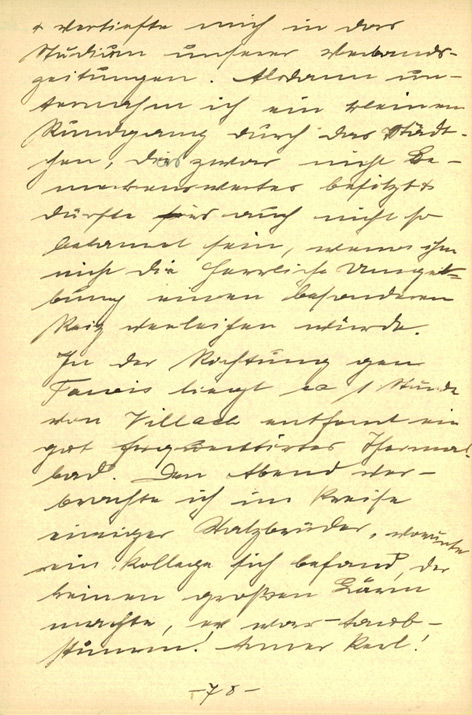 & vertiefte mich in das
Studium unserer Verbands-
zeitungen. Alsdann un-
ternahm ich ein kleinen
Rundgang durch das Städt-
chen, dies zwar nicht Be-
merkenswertes besitzt &
dürfte auch nicht so
bekannt sein, wenn ihm
nicht die herrliche Umge-
bung einen besonderen
Reiz verleihen würde.
In der Richtung gen
Tarvis liegt ca 1 Stunde
von Villach entfernt ein
gut frequentirtes Thermal
bad. Den Abend ver-
brachte ich im Kreise
einiger Walzbrüder, worunter
ein Kollege sich befand, der
keinen großen Lärm
machte, er war taub-
stumm. Armer Kerl!
-78-